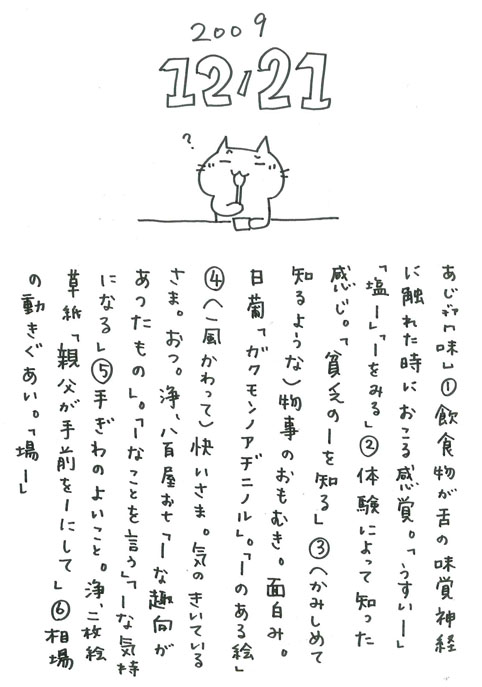 2009
12/21
?
あじ【味】①飲食物が舌の味覚神経
に触れた時におこる感覚。「うすいー」
「塩ー」「ーをみる」②体験によって知った
感じ。「貧乏のーを知る」③(かみしめて
知るような)物事のおもむき。面白み。
日葡「ガクモンノアヂニノル」。「ーのある絵」
④(一風かわって)快いさま。気のきいている
さま。おつ。浄、八百屋お七「ーな趣向が
あったもの」。「ーなことを言う」「ーな気持
になる」⑤手ぎわのよいこと。浄、二枚絵
草紙「親父が手前をーにして」⑥相場
の動きぐあい。「場ー」